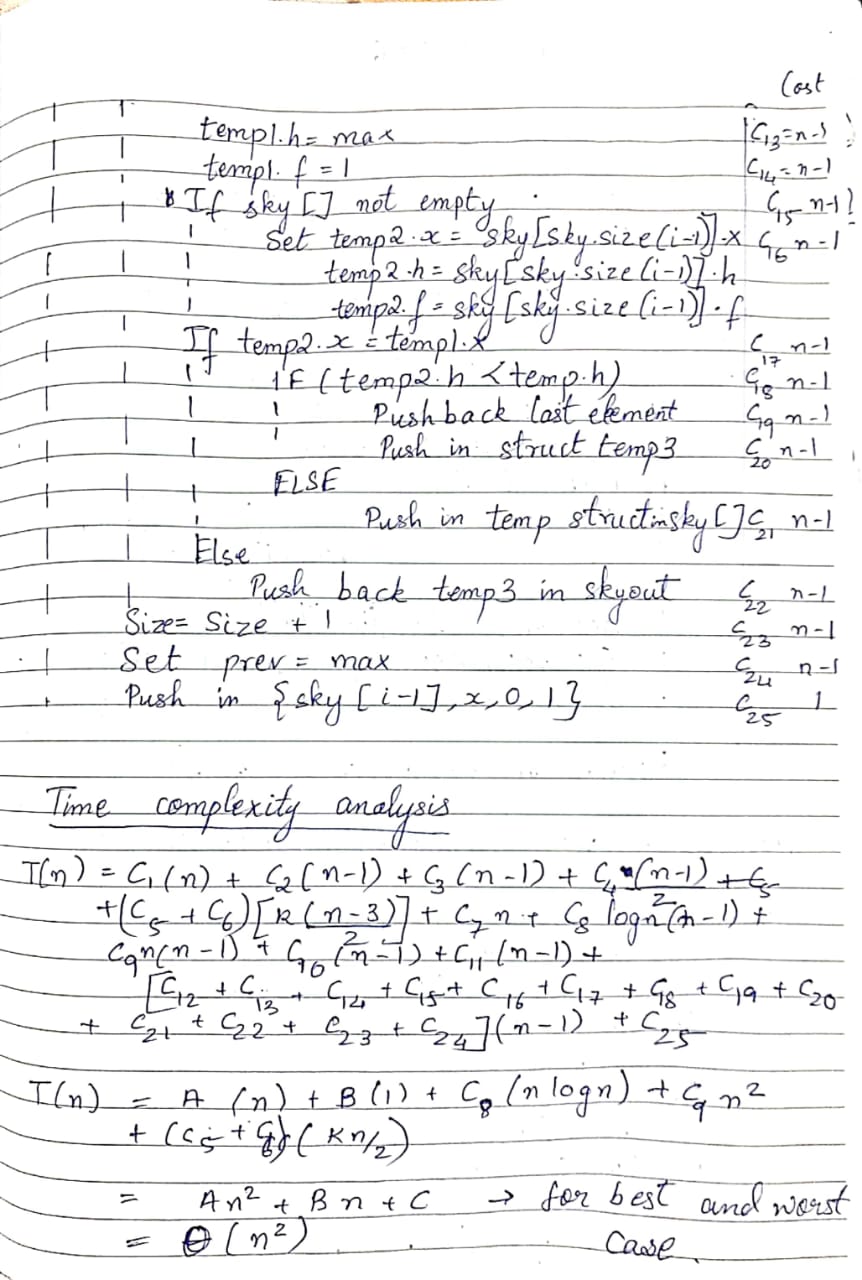 Cost
temp1.h= max C13=n-1
temp1. f = 1 C14=n-1
If sky [] not empty C15 n-1
Set temp2.x = sky[sky.size(i-1)].x C16 n-1
temp2.h = sky[sky.size(i-1)].h
temp2.f = sky[sky.size(i-1)].f
If temp2.x = temp1.x C17 n-1
IF (temp2.h < temp.h) C18 n-1
Push back last element C19 n-1
Push in struct temp3 C20 n-1
ELSE
Push in temp struct in sky[] C21 n-1
Else
Push back temp3 in skyout C22 n-1
Size= Size + 1 C23 n-1
Set prev = max C24 n-1
Push in {sky [i-1], x, 0, 1} C25 1
Time complexity analysis
T(n) = C1(n) + C2(n-1) + C3(n-1) + C4(n-1) + C5
+(C5 + C6)[k(n-3)/2] + C7n + C8 logn/2(n-1) +
C9n(n-1) + C10(n-1) + C11(n-1) +
[C12 + C13 + C14 + C15 + C16 + C17 + C18 + C19 + C20
+ C21 + C22 + C23 + C24](n-1) + C25
T(n) = A (n) + B(1) + C8(n logn) + C9 n²
+ (C5 + C6)(Kn/2)
= An² + Bn + C → for best and worst
= Θ(n²) Case